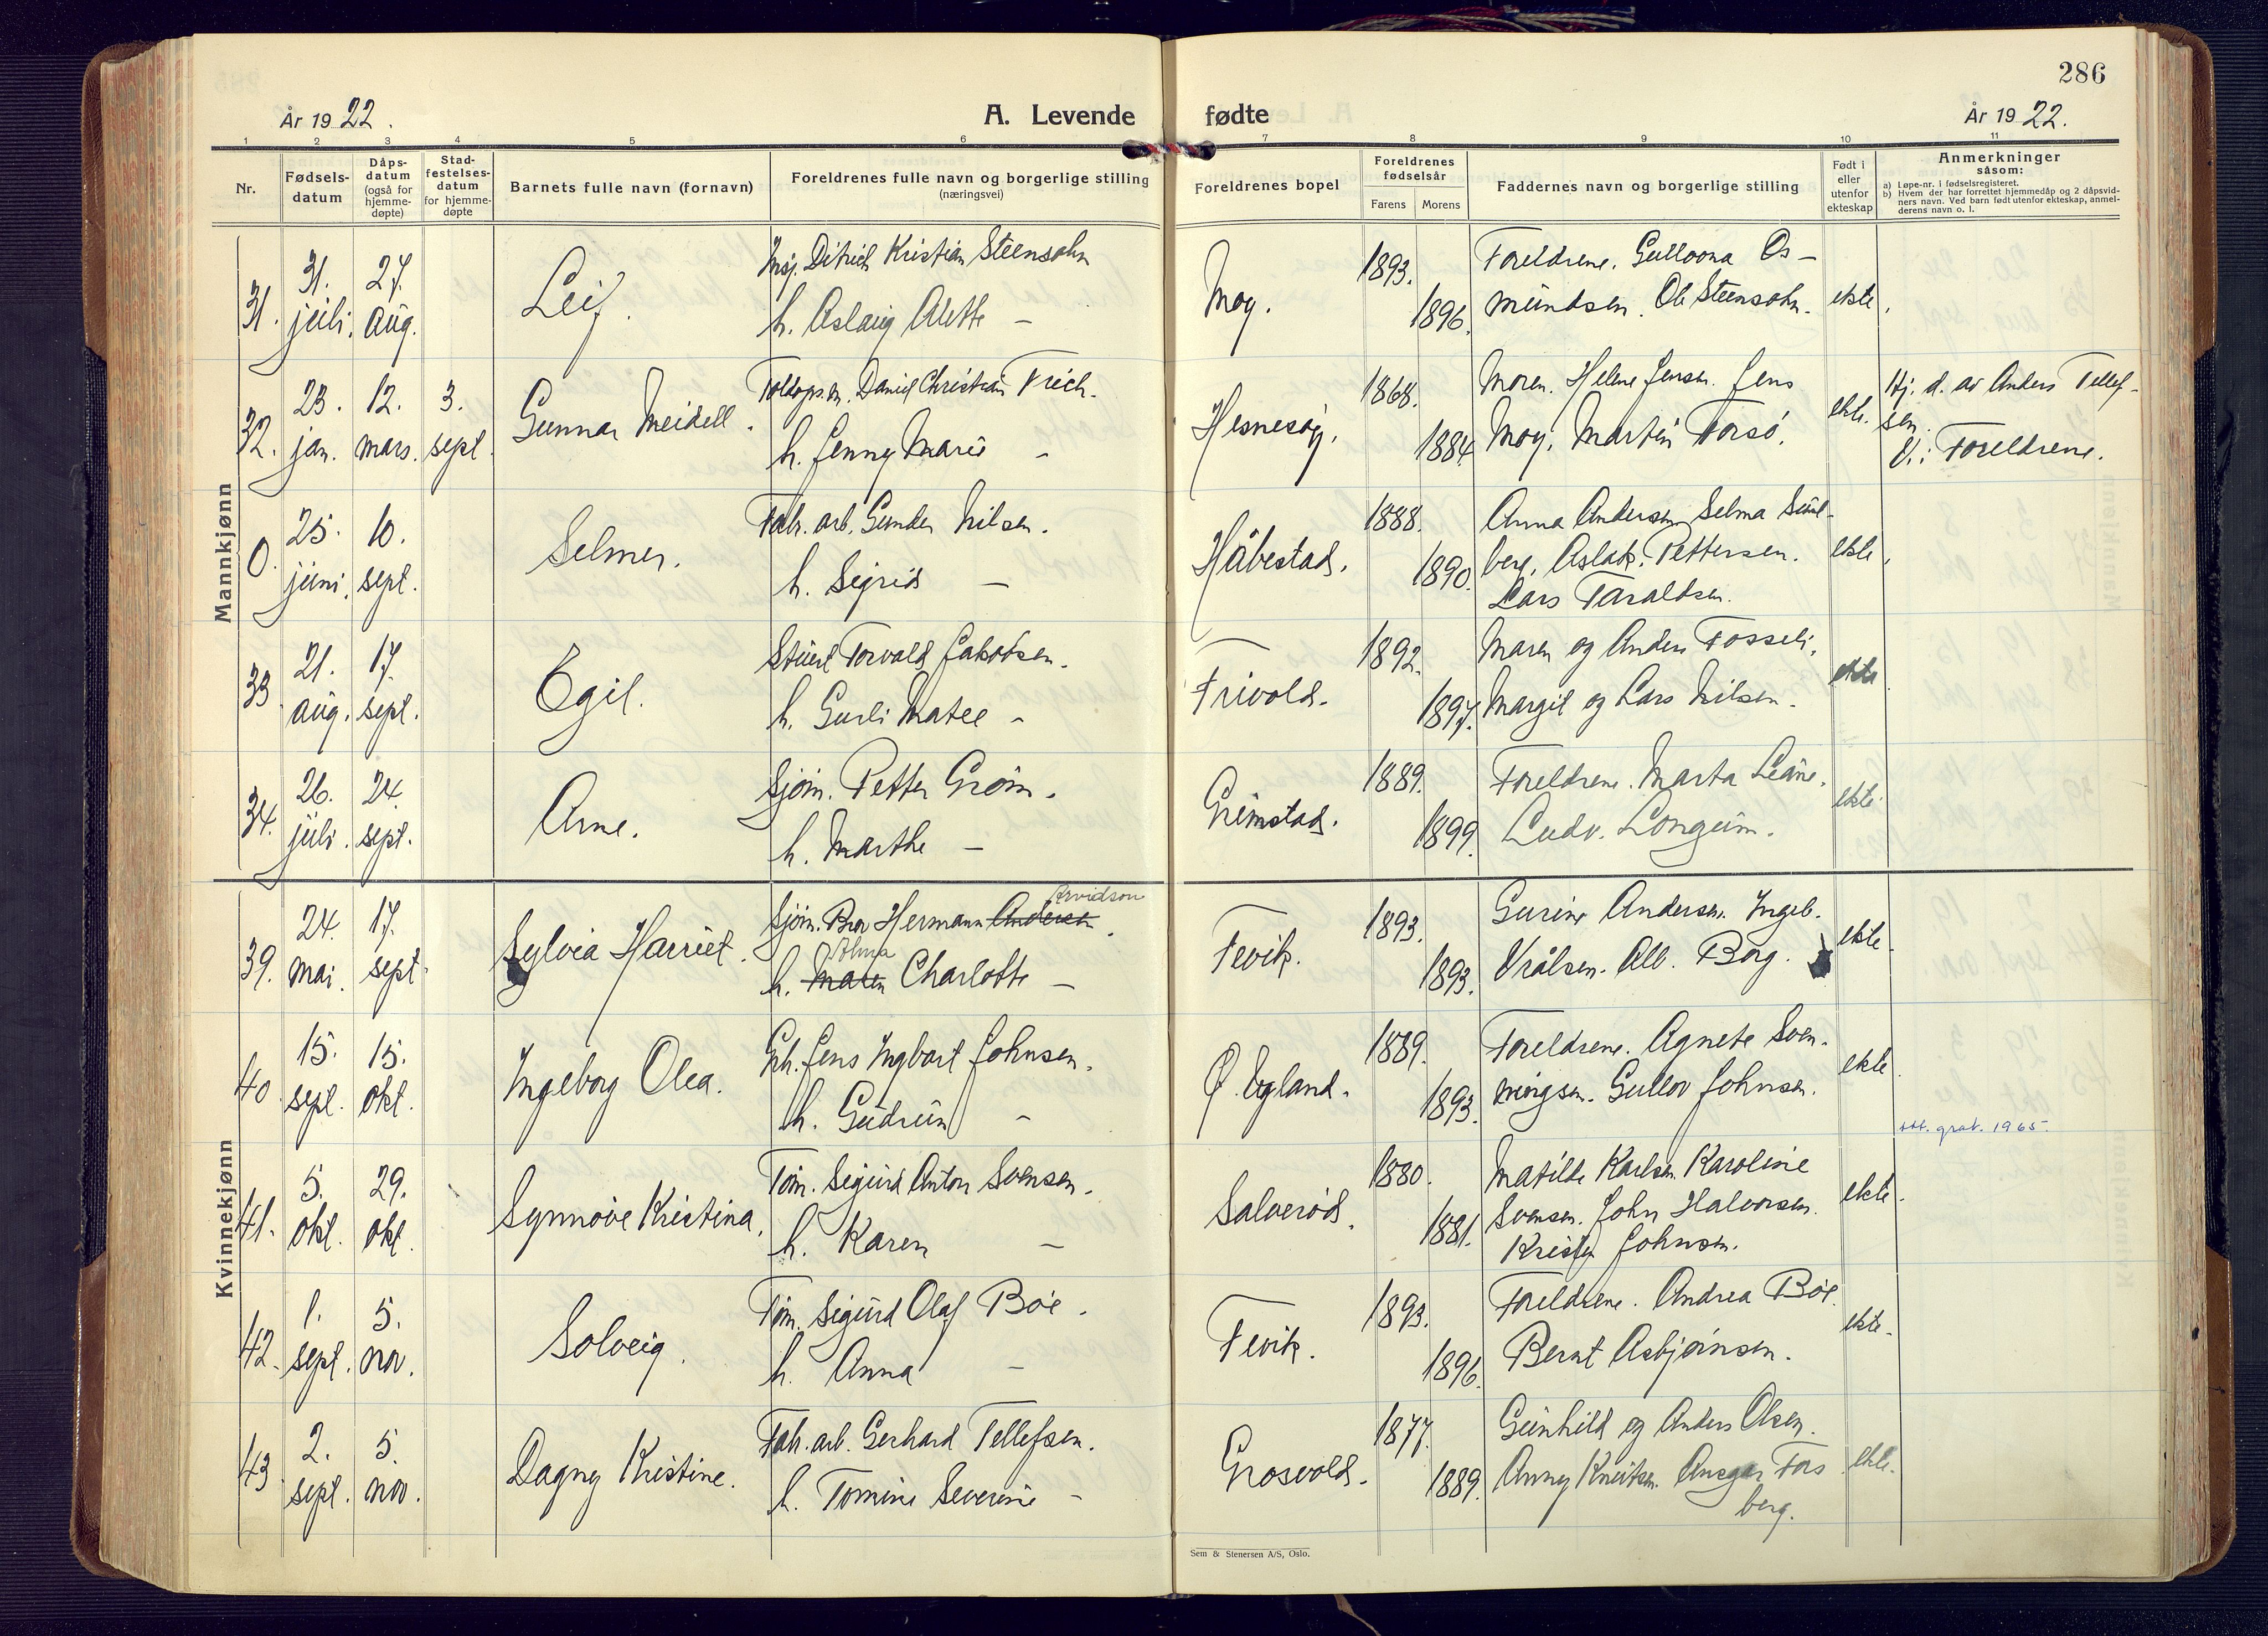 286
År 1922.
A. Levende fødte
År 1922.
1 2 3 4 5 6 7 8 9 10 11
Nr.
Fødsels-
datum
Dåps-
datum
(også for
hjemme-
døpte)
Stad-
festelses-
datum
for hjemme-
døpte
Barnets fulle navn (fornavn)
Foreldrenes fulle navn og borgerlige stilling
(næringsvei)
Foreldrenes bopel
Foreldrenes
fødselsår
Farens Morens
Faddernes navn og borgerlige stilling
Født i
eller
utenfor
ekteskap
Anmerkninger
såsom:
a) Løpe-nr. i fødselsregisteret.
b) Hvem der har forrettet hjemmedåp og 2 dåpsvid-
ners navn. Ved barn født utenfor ekteskap, anmel-
derens navn o. l.
Mannkjønn
31. 31. juli. 27. aug.
Leif.
Ditrich Kristian Steensohn
h. Aslaug Alette —
Moy.
1893.
1896.
Foreldrene. Gulloona Os-
mundsen. Ole Steensohn.
ekte.
32. 23. jan. 12. mars. 3. sept.
Gunnar Meidell.
Toldops.m. Daniel Christian Frich.
h. Jenny Marie -
Hesnesøy.
1868.
1884.
Moren. Helene Jensen. Jens
Moy. Martin Torsö.
ekte.
Hj. d. av Anders Tellef-
sen.
V.: Foreldrene.
0. 25. juni. 10. sept.
Selmer.
Fabr. arb. Gunder Nilsen.
h. Sigrid —
Håbestad.
1888.
1890.
Anna Andersen, Selma Sund-
berg, Aslak. Pettersen.
Lars Taraldsen.
ekte.
33. 21. aug. 17. sept.
Egil.
Stuert Torvald Jakobsen.
h. Gurli Matee -
Frivold.
1892.
1897.
Maren og Anders Fosseli.
Margit og Lars Nilsen.
ekte.
34. 26. juli. 24. sept.
Arne.
Sjøm. Petter Grøm.
h. Marthe —
Grimstad.
1889.
1899.
Foreldrene. Marta Leane.
Ludv. Longum.
ekte.
Kvinnekjønn
39. 24. mai. 17. sept.
Sylvia Harriet.
Arvidson
Sjøm. Bror Hermann Andersen.
Alma
h. Maren Charlotte —
Fevik.
1893.
1893.
Gurine Andersen. Ingeb.
Vrålsen. Alb. Borg.
ekte.
40. 15. sept. 15. okt.
Ingeborg Olea.
Gbr. Jens Ingbart Johnsen.
h. Gudrun -
Ø. Egland.
1889.
1893.
Foreldrene. Agnete Sven-
ningsen. Gullov Johnsen.
ekte.
att. grat. 1965.
41. 5. okt. 29. okt.
Synnøve Kristina.
Tøm. Sigurd Anton Svensen.
h. Karen —
Salverød.
1880.
1881.
Matilde Karlsen. Karoline
Svensen. John Halvorsen.
Kristen Johnsen.
ekte.
42. 1. sept. 5. nov.
Solveig.
Tøm. Sigurd Olaf Bøe.
h. Anna —
Fevik.
1893.
1896.
Foreldrene. Andrea Bøe.
Bernt Asbjørnsen.
ekte.
43. 2. sept. 5. nov.
Dagny Kristine.
Fabr. arb. Gerhard Tellefsen.
h. Tomine Severine -
Grosvold.
1877.
1889.
Gunhild og Anders Olsen.
Anny Knutsen. Ansgar Fors
berg.
ekte.
Sem & Stenersen A/S, Oslo.